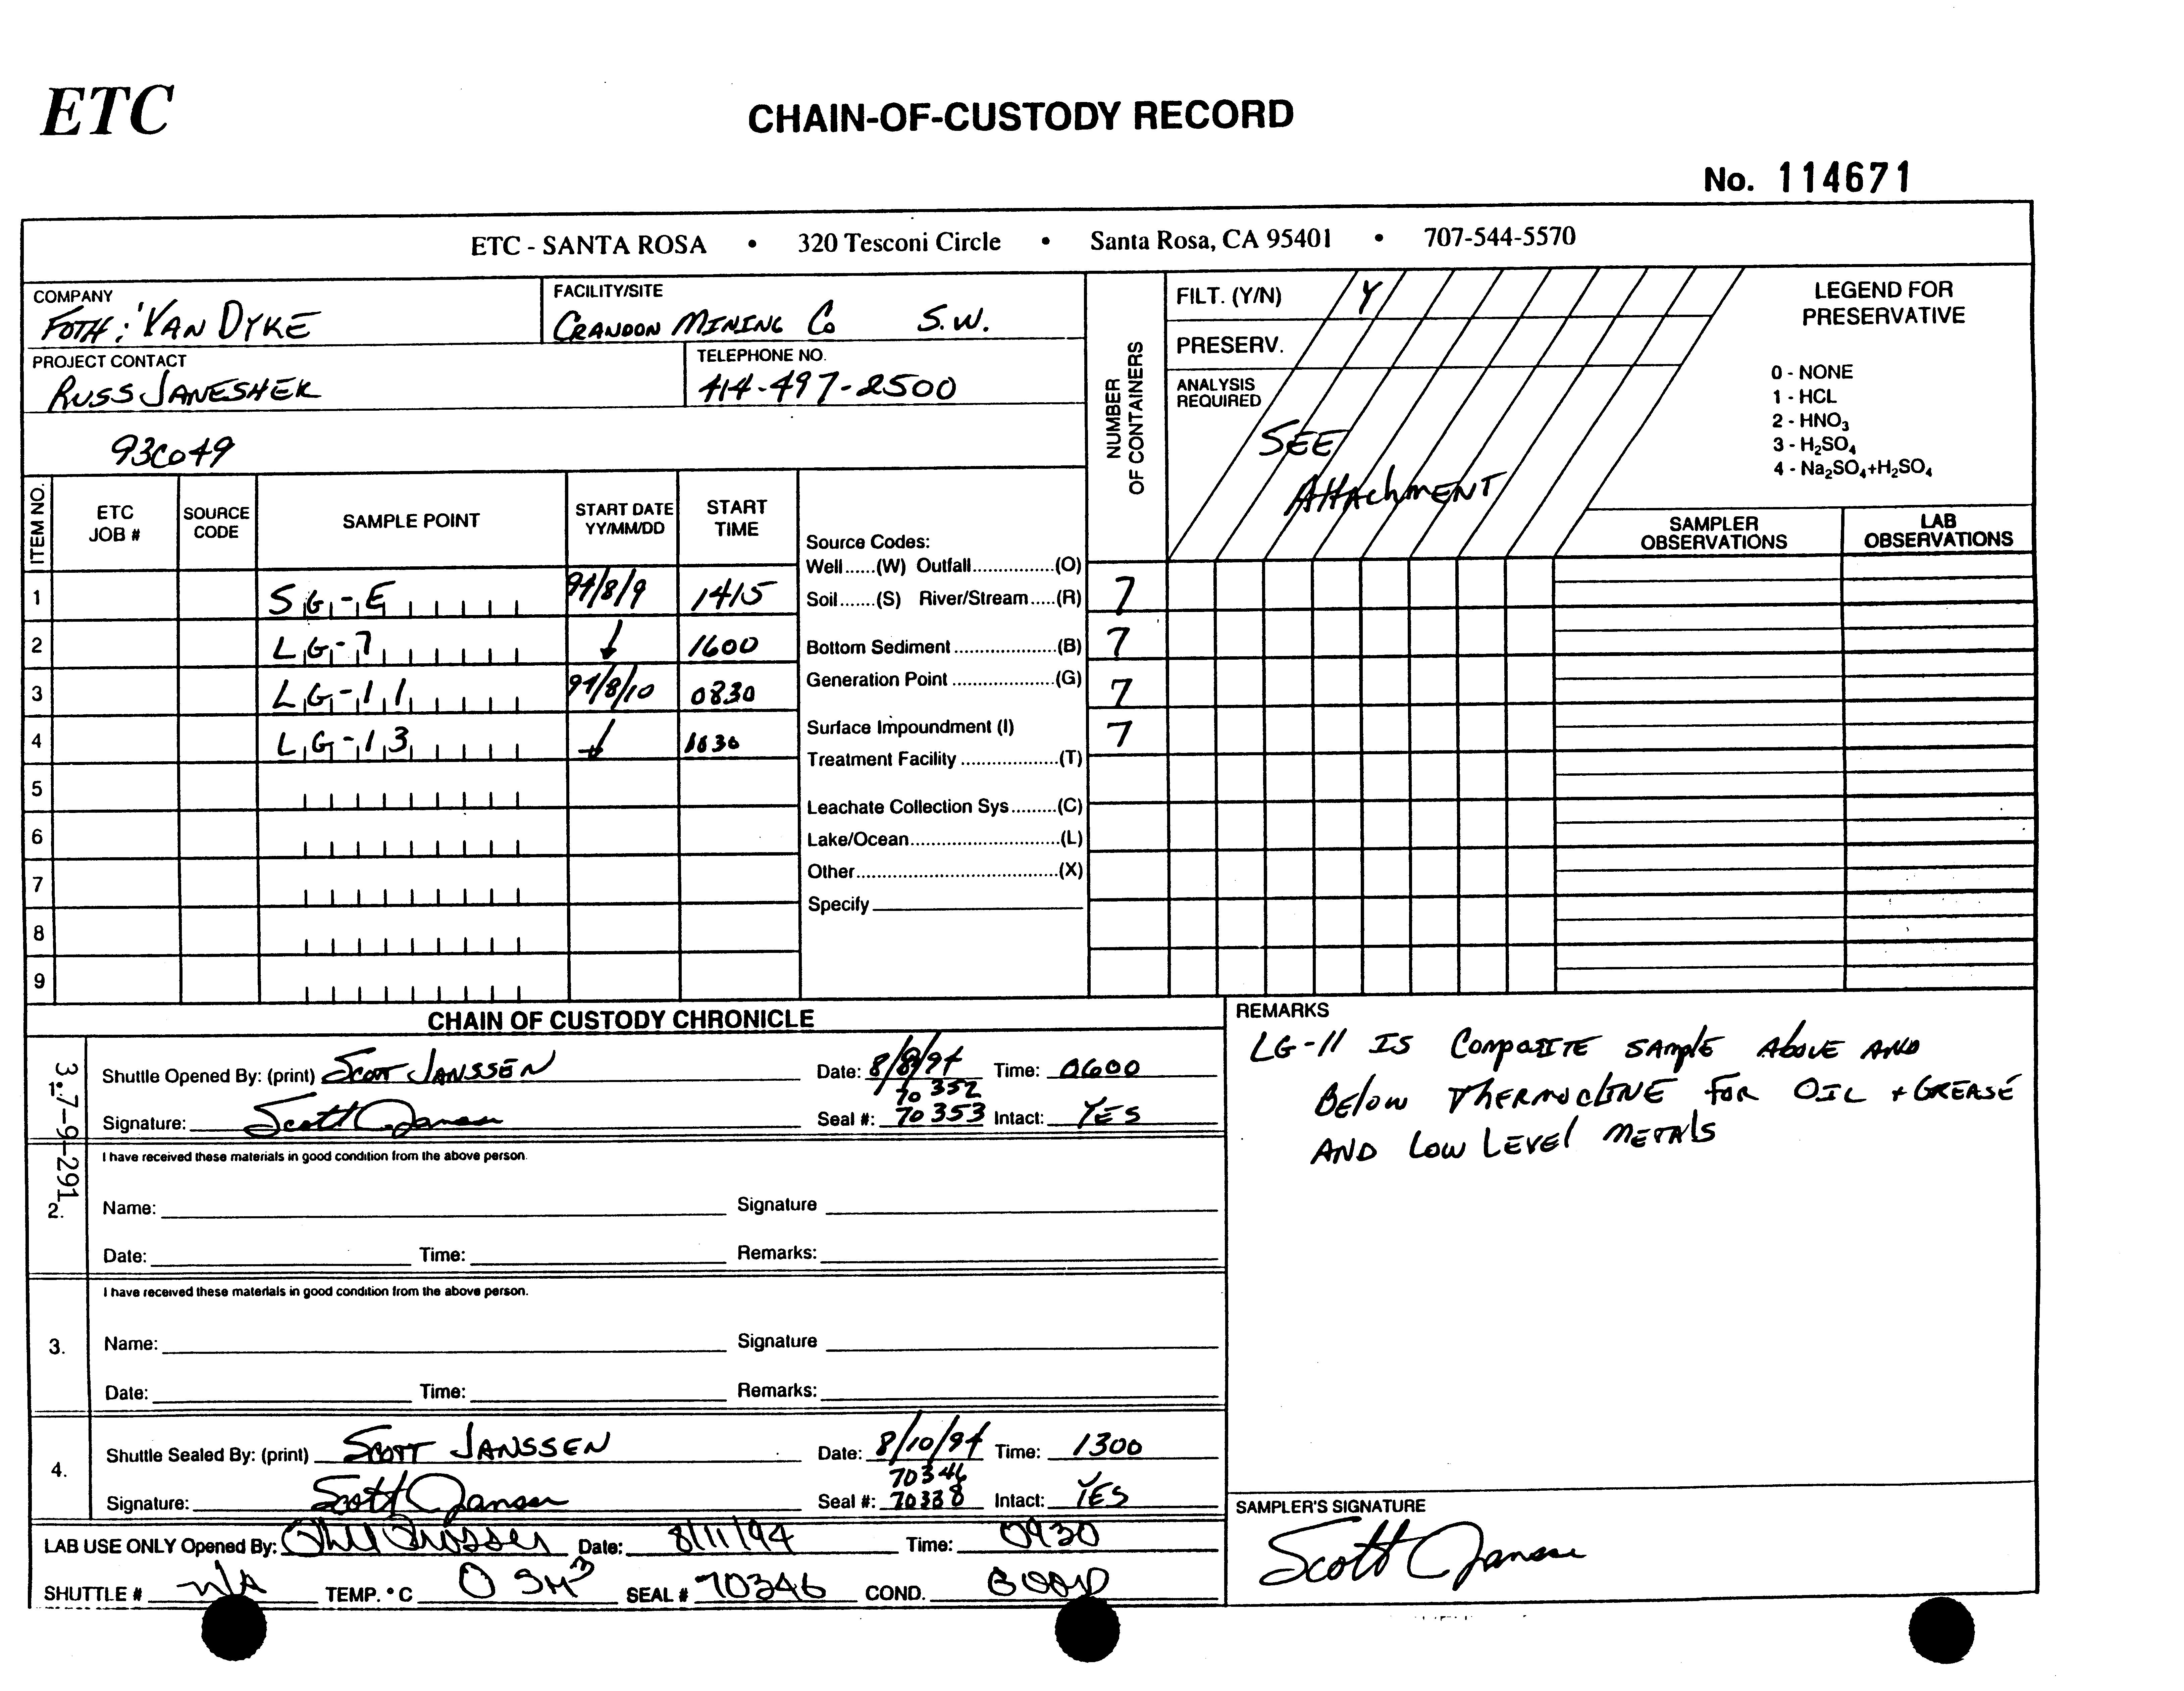 ETC
CHAIN-OF-CUSTODY RECORD
No. 114671
ETC - SANTA ROSA • 320 Tesconi Circle • Santa Rosa, CA 95401 • 707-544-5570
COMPANY
FOTH : VAN DYKE
FACILITY/SITE
CRANDON MINING Co S.W.
PROJECT CONTACT
RUSS JANESHEK
TELEPHONE NO.
414-497-2500
93C049
NUMBER OF CONTAINERS
FILT. (Y/N) Y
PRESERV.
ANALYSIS REQUIRED
SEE
AttAchmENT
LEGEND FOR
PRESERVATIVE
0 - NONE
1 - HCL
2 - HNO3
3 - H2SO4
4 - Na2SO4+H2SO4
ITEM NO. ETC JOB # SOURCE CODE SAMPLE POINT START DATE YY/MM/DD START TIME
SAMPLER OBSERVATIONS LAB OBSERVATIONS
1 SG-E 94/8/9 1415 7
2 LG-7 ↓ 1600 7
3 LG-11 94/8/10 0830 7
4 LG-13 ↓ 7
5
6
7
8
9
Source Codes:
Well......(W) Outfall................(O)
Soil.......(S) River/Stream.....(R)
Bottom Sediment...................(B)
Generation Point...................(G)
Surface Impoundment (I)
Treatment Facility..................(T)
Leachate Collection Sys.........(C)
Lake/Ocean............................(L)
Other......................................(X)
Specify
CHAIN OF CUSTODY CHRONICLE
3:7-9-291
1.
Shuttle Opened By: (print) SCOTT JANSSEN Date: 8/8/94 Time: 0600
70 352
Signature: Scott C Janssen Seal #: 70 353 Intact: YES
2.
I have received these materials in good condition from the above person.
Name: Signature
Date: Time: Remarks:
3.
I have received these materials in good condition from the above person.
Name: Signature
Date: Time: Remarks:
4.
Shuttle Sealed By: (print) SCOTT JANSSEN Date: 8/10/94 Time: 1300
70346
Signature: Scott C Janssen Seal #: 70338 Intact: YES
LAB USE ONLY Opened By: Date: 8/11/94 Time: 0930
SHUTTLE # N/A TEMP. °C SEAL # 70346 COND. GOOD
REMARKS
LG-11 IS COMPOSITE SAMPlE ABOVE AND
BElOW THERMOCLINE FOR OIL + GREASE
AND LOW LEVEl METAlS
SAMPLER'S SIGNATURE
Scott C Janssen